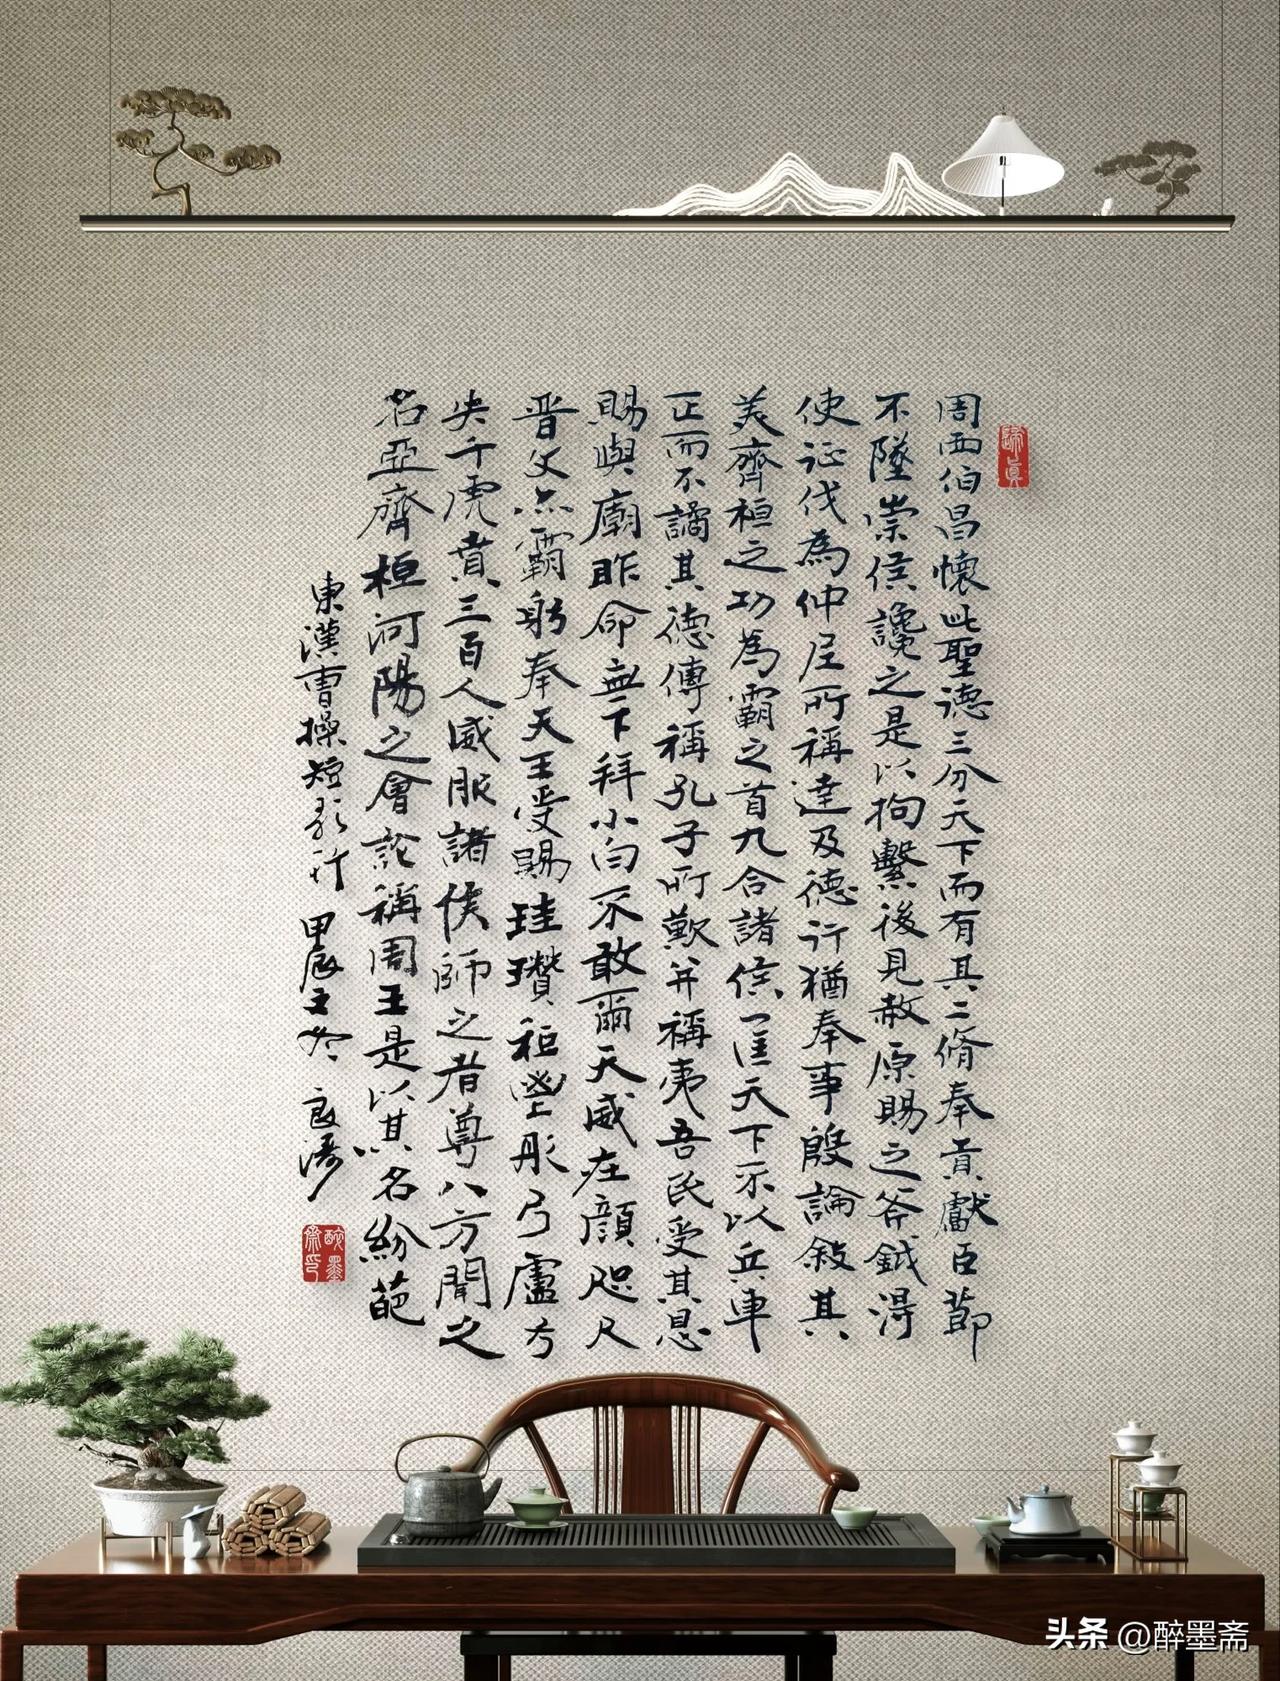 歸真
周西伯昌懷此聖德三分天下而有其二脩奉貢獻臣節
不墜崇侯讒之是以拘繫後見赦原賜之斧鉞得
使征伐為仲尼所稱達及德行猶奉事殷論敘其
美齊桓之功為霸之首九合諸侯一匡天下不以兵車
正而不譎其德傳稱孔子所歎并稱夷吾民受其恩
賜與廟胙命無下拜小白不敢爾天威在顏咫尺
晉文亦霸躬奉天王受賜珪瓚秬鬯彤弓盧弓
矢千虎賁三百人威服諸侯師之者尊八方聞之
名亞齊桓河陽之會詐稱周王是以其名紛葩
東漢曹操短歌行 甲辰 良濤
醉墨齋印
头条 @醉墨斋